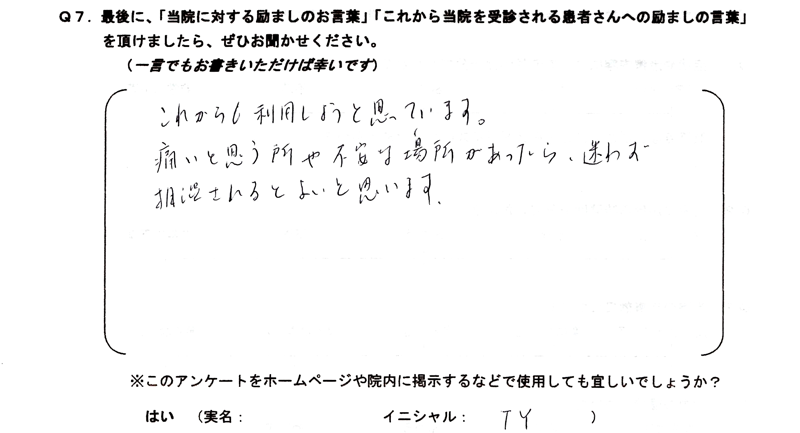 Q7．最後に、「当院に対する励ましのお言葉」「これから当院を受診される患者さんへの励ましの言葉」
を頂けましたら、ぜひお聞かせください。
（一言でもお書きいただけば幸いです）
これからも利用しようと思っています。
痛いと思う所や不安な場所があったら、迷わず
相談されるとよいと思います。
※このアンケートをホームページや院内に掲示するなどで使用しても宜しいでしょうか？
はい （実名： イニシャル： TY ）